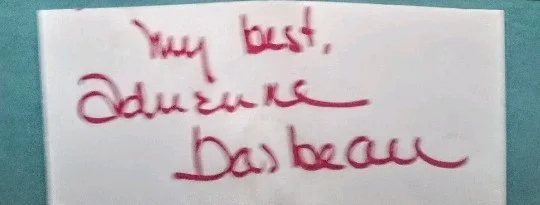 My best,
Adrienne
Barbeau